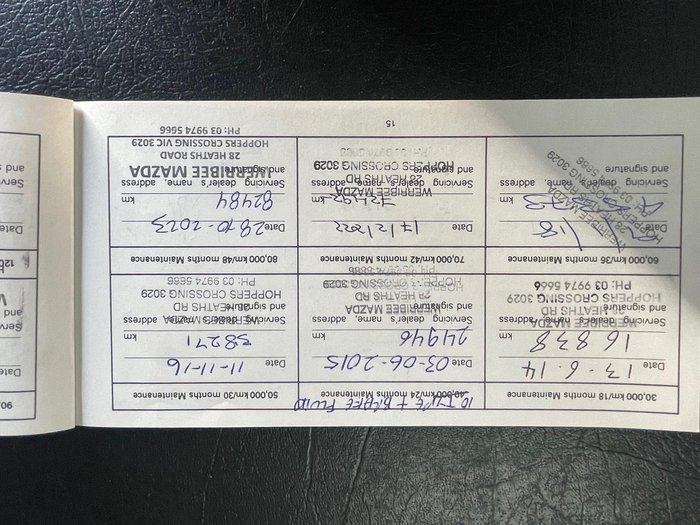 30,000 km/18 months Maintenance
Date 13-6.14
16838 km
Servicing dealer's name, address
and signature
WERRIBEE MAZDA
28 HEATHS RD
HOPPERS CROSSING 3029
PH: 03 9974 5666
40,000 km/24 months Maintenance
+ BRAKE FLUID
Date 03-06-2015
24946 km
Servicing dealer's name, address
and signature
WERRIBEE MAZDA
28 HEATHS RD
HOPPERS CROSSING 3029
50,000 km/30 months Maintenance
Date 11-11-16
38271 km
Servicing dealer's name, address
and signature
WERRIBEE MAZDA
28 HEATHS RD
HOPPERS CROSSING 3029
PH: 03 9974 5666
60,000 km/36 months Maintenance
Date
km
Servicing dealer's name, address
and signature
WERRIBEE MAZDA
28 HEATHS RD
HOPPERS CROSSING 3029
70,000 km/42 months Maintenance
Date 17/2/2022
72492 km
Servicing dealer's name, address
and signature
WERRIBEE MAZDA
28 HEATHS RD
HOPPERS CROSSING 3029
80,000 km/48 months Maintenance
Date 28-10-2023
82484 km
Servicing dealer's name, address
and signature
WERRIBEE MAZDA
28 HEATHS ROAD
HOPPERS CROSSING VIC 3029
PH: 03 9974 5666
15
90,
Date
Servi
and s
120
Date
Servi
and s